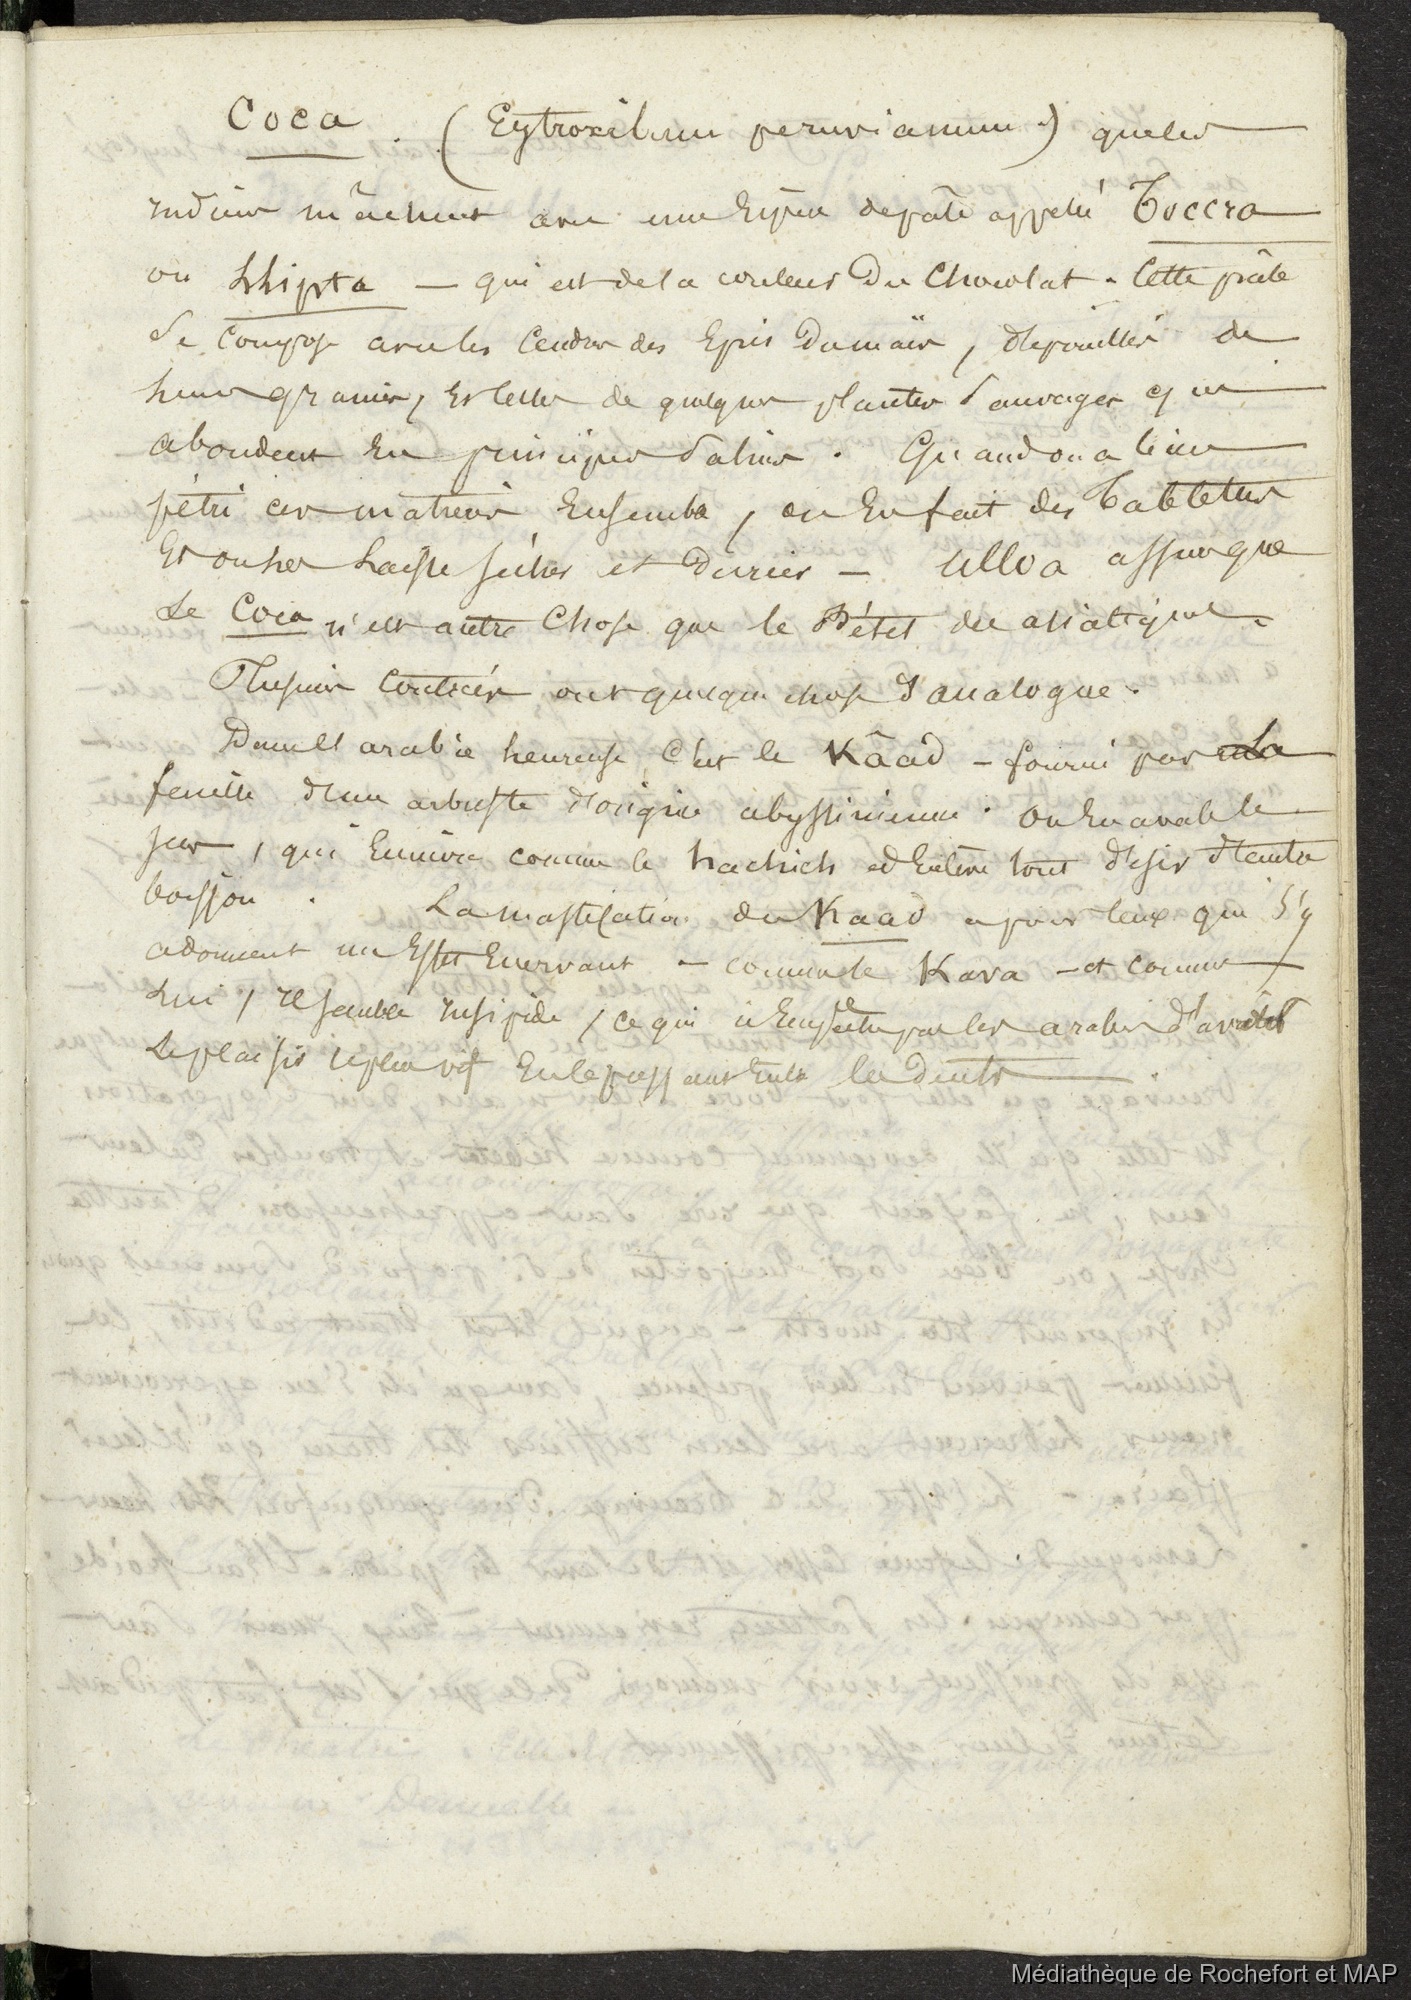 Coca . (Eytroxilum peruvianum) que les
Indiens mâchent avec une Espèce de pâte appelée Toccra
ou Lhipta — qui est de la couleur Du Chocolat. Cette pâte
Se compose avec les Cendres des Epis Du maïs, depouillés de
leurs graines, Et celles de quelques plantes Sauvages qui
abondent En principes Salins. Quand on a bien
pétri ces matieres Ensemble, on En fait des Tablettes
Et on les Laisse sécher et Durcir — Ulloa assure que
Le Coca n'est autre Chose que le Bétel des asiatiques.
Plusieurs Contrées ont quelque chose d'analogue.
Dans l'arabie heureuse, C'est le Kâad — fourni par la
feuille d'un arbuste d'origine abyssinienne. On En avale le
suc, qui Enivre comme le hachich et Enlève tout desir d'autre
boisson . La mastication du Kaad a pour ceux qui s'y
adonnent un Effet Enervant — comme le Kava — et comme
Lui, Il semble Insipide, ce qui n'Empêche pas les arabes d'avoir
Le plaisir le plus vif En le pressant Entre les Dents .
Médiathèque de Rochefort et MAP